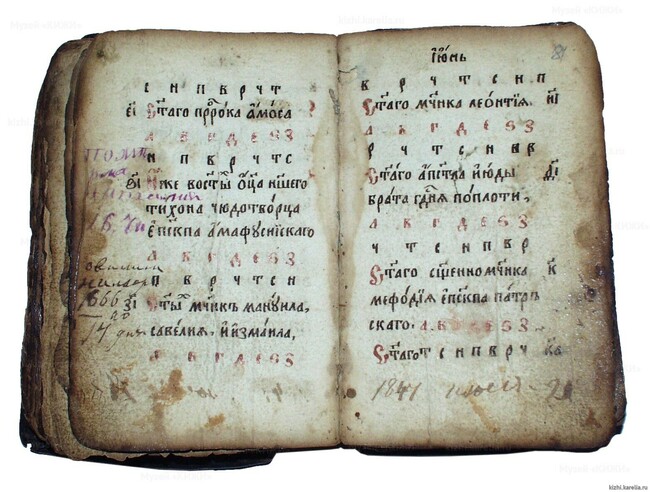 с н п в р ч т
еі Ст҃аго прⷪ҇рока а҆мѡса
а в г д е ѕ з
н п в р ч т с
ѕі и҆же во ст҃ы́ ѻ҆ц҃а на́шего
тихона чюдотворца
є҆пⷭ҇кпа а҆мафꙋсиⷤскаго
а в г д е ѕ з
п в р ч т с н
зі Ст҃ы́ мчⷩ҇къ манꙋила,
савелиѧ, и҆ и҆змаила,
а в г д е ѕ з
1866
14
і҆ю́нь
в р ч т с н п
Ст҃аго мчⷩ҇ика леонтїѧ. иі
а в г д е ѕ з
р ч т с н п в
Ст҃аго а҆пⷭ҇тла и҆ю́ды ѳі
брата гдⷭ҇нѧ по плоти,
а в г д е ѕ з
ч т с н п в р
Ст҃аго сщ҃енномчⷩ҇ка к
мефодїѧ є҆пⷭ҇кпа патрь
скаго. а в г д е ѕ з
Ст҃аго т с н п в р ч ка
1841
kizhi.karelia.ru